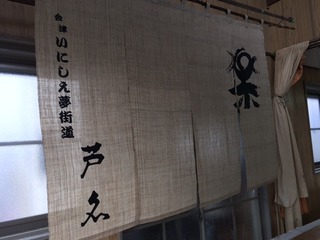 会津
いにしえ夢街道
芦名